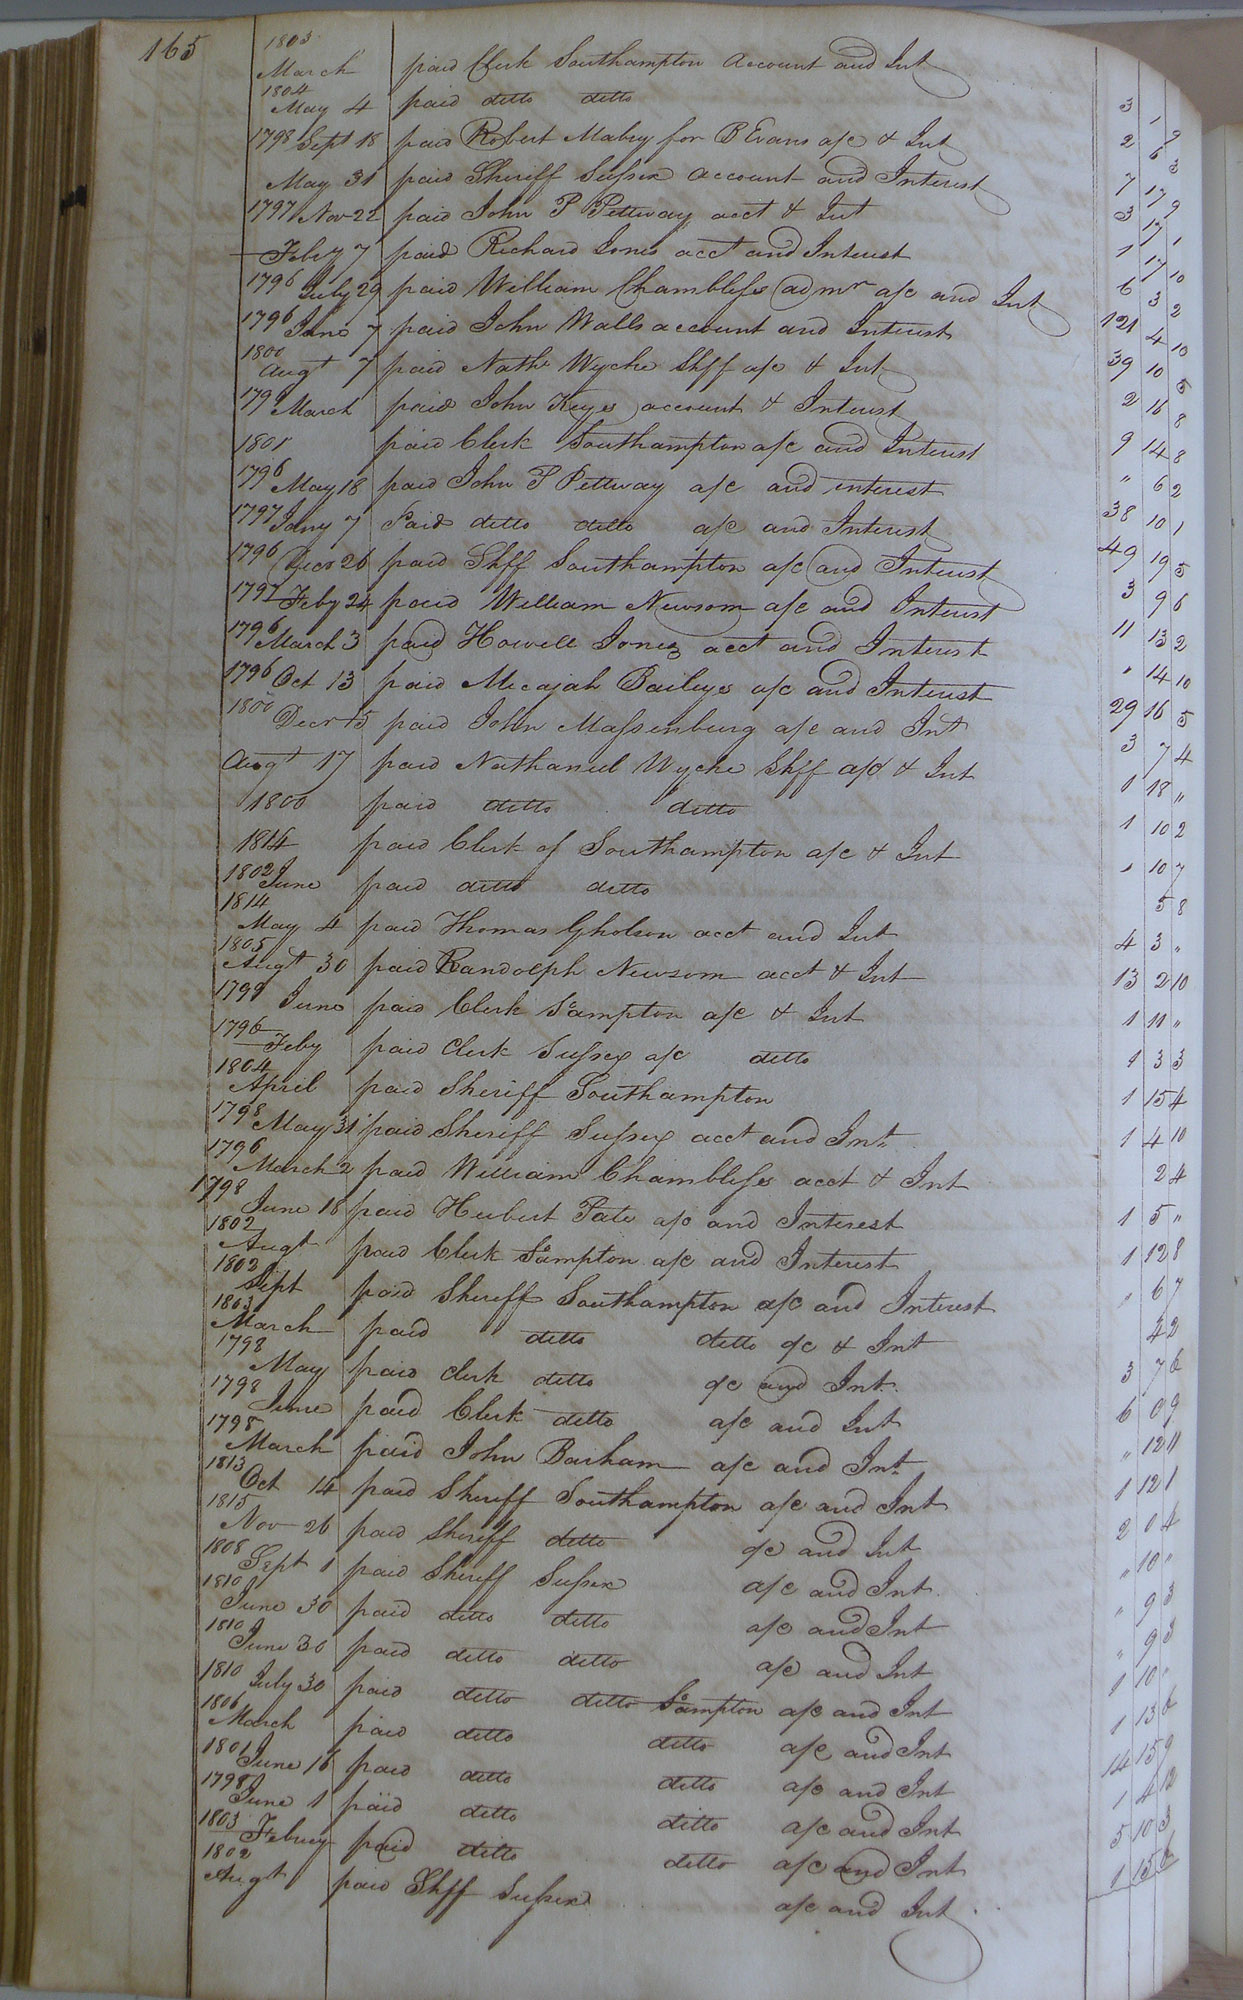 165
1803 March paid Clerk Southampton Account and Int 3 1 9
1804 May 4 paid ditto ditto 2 6 3
1798 Sept 18 paid Robert Mabry for B Evans a/c & Int 7 17 9
May 31 paid Sheriff Sussex account and Interest 3 17 1
1797 Nov 22 paid John P Pettway acct & Int 1 17 10
Feby 7 paid Richard Jones acct and Interest 6 3 2
1796 July 29 paid William Chambless admr a/c and Int 121 4 10
1796 June 7 paid John Walls account and Interest 39 10 5
1800 Augt 7 paid Nathl Wyche Shff a/c & Int 2 16 8
1799 March paid John Keyes account & Interest 9 14 8
1801 paid Clerk Southampton a/c and Interest " 6 2
1796 May 18 paid John P Pettway a/c and interest 38 10 1
1797 Jany 7 Paid ditto ditto a/c and Interest 49 19 5
1796 Decr 26 paid Shff Southampton a/c and Interest 3 9 6
1797 Feby 24 paid William Newsom a/c and Interest 11 13 2
1796 March 3 paid Howell Jones acct and Interest " 14 10
1796 Oct 13 paid Micajah Baileys a/c and Interest 29 16 5
1800 Decr 15 paid John Massenburg a/c and Int 3 7 4
Augt 17 paid Nathaniel Wyche Shff a/c & Int 1 18 "
1800 paid ditto ditto 1 10 2
1814 paid Clerk of Southampton a/c & Int " 10 7
1802 June paid ditto ditto 5 8
1814 May 4 paid Thomas Gholson acct and Int 4 3 "
1805 Augt 30 paid Randolph Newsom acct & Int 13 2 10
1799 June paid Clerk Sampton a/c & Int 1 11 "
1796 Feby paid Clerk Sussex a/c ditto 1 3 3
1804 April paid Sheriff Southampton 1 15 4
1798 May 31 paid Sheriff Sussex acct and Int 1 4 10
1796 March 2 paid William Chambless acct & Int 2 4
1798 June 18 paid Herbert Pate a/c and Interest 1 5 "
1802 Augt paid Clerk Sampton a/c and Interest 1 12 8
1802 Sept paid Sheriff Southampton a/c and Interest " 6 7
1803 March paid ditto ditto a/c & Int 4 2
1798 May paid clerk ditto a/c and Int 3 7 6
1798 June paid Clerk ditto a/c and Int 6 0 9
1798 March paid John Barham a/c and Int " 12 11
1813 Oct 14 paid Sheriff Southampton a/c and Int 1 12 1
1815 Nov 26 paid Sheriff ditto a/c and Int 2 0 4
1808 Sept 1 paid Sheriff Sussex a/c and Int " 10 "
1810 June 30 paid ditto ditto a/c and Int " 9 3
1810 June 30 paid ditto ditto a/c and Int " 9 3
1810 July 30 paid ditto ditto Sampton a/c and Int 1 10 "
1806 March paid ditto ditto a/c and Int 1 13 6
1801 June 16 paid ditto ditto a/c and Int 14 15 9
1798 June 1 paid ditto ditto a/c and Int 1 4 12
1803 Febuey paid ditto ditto a/c and Int 5 10 3
1802 Augt paid Shff Sussex a/c and Int 1 15 6